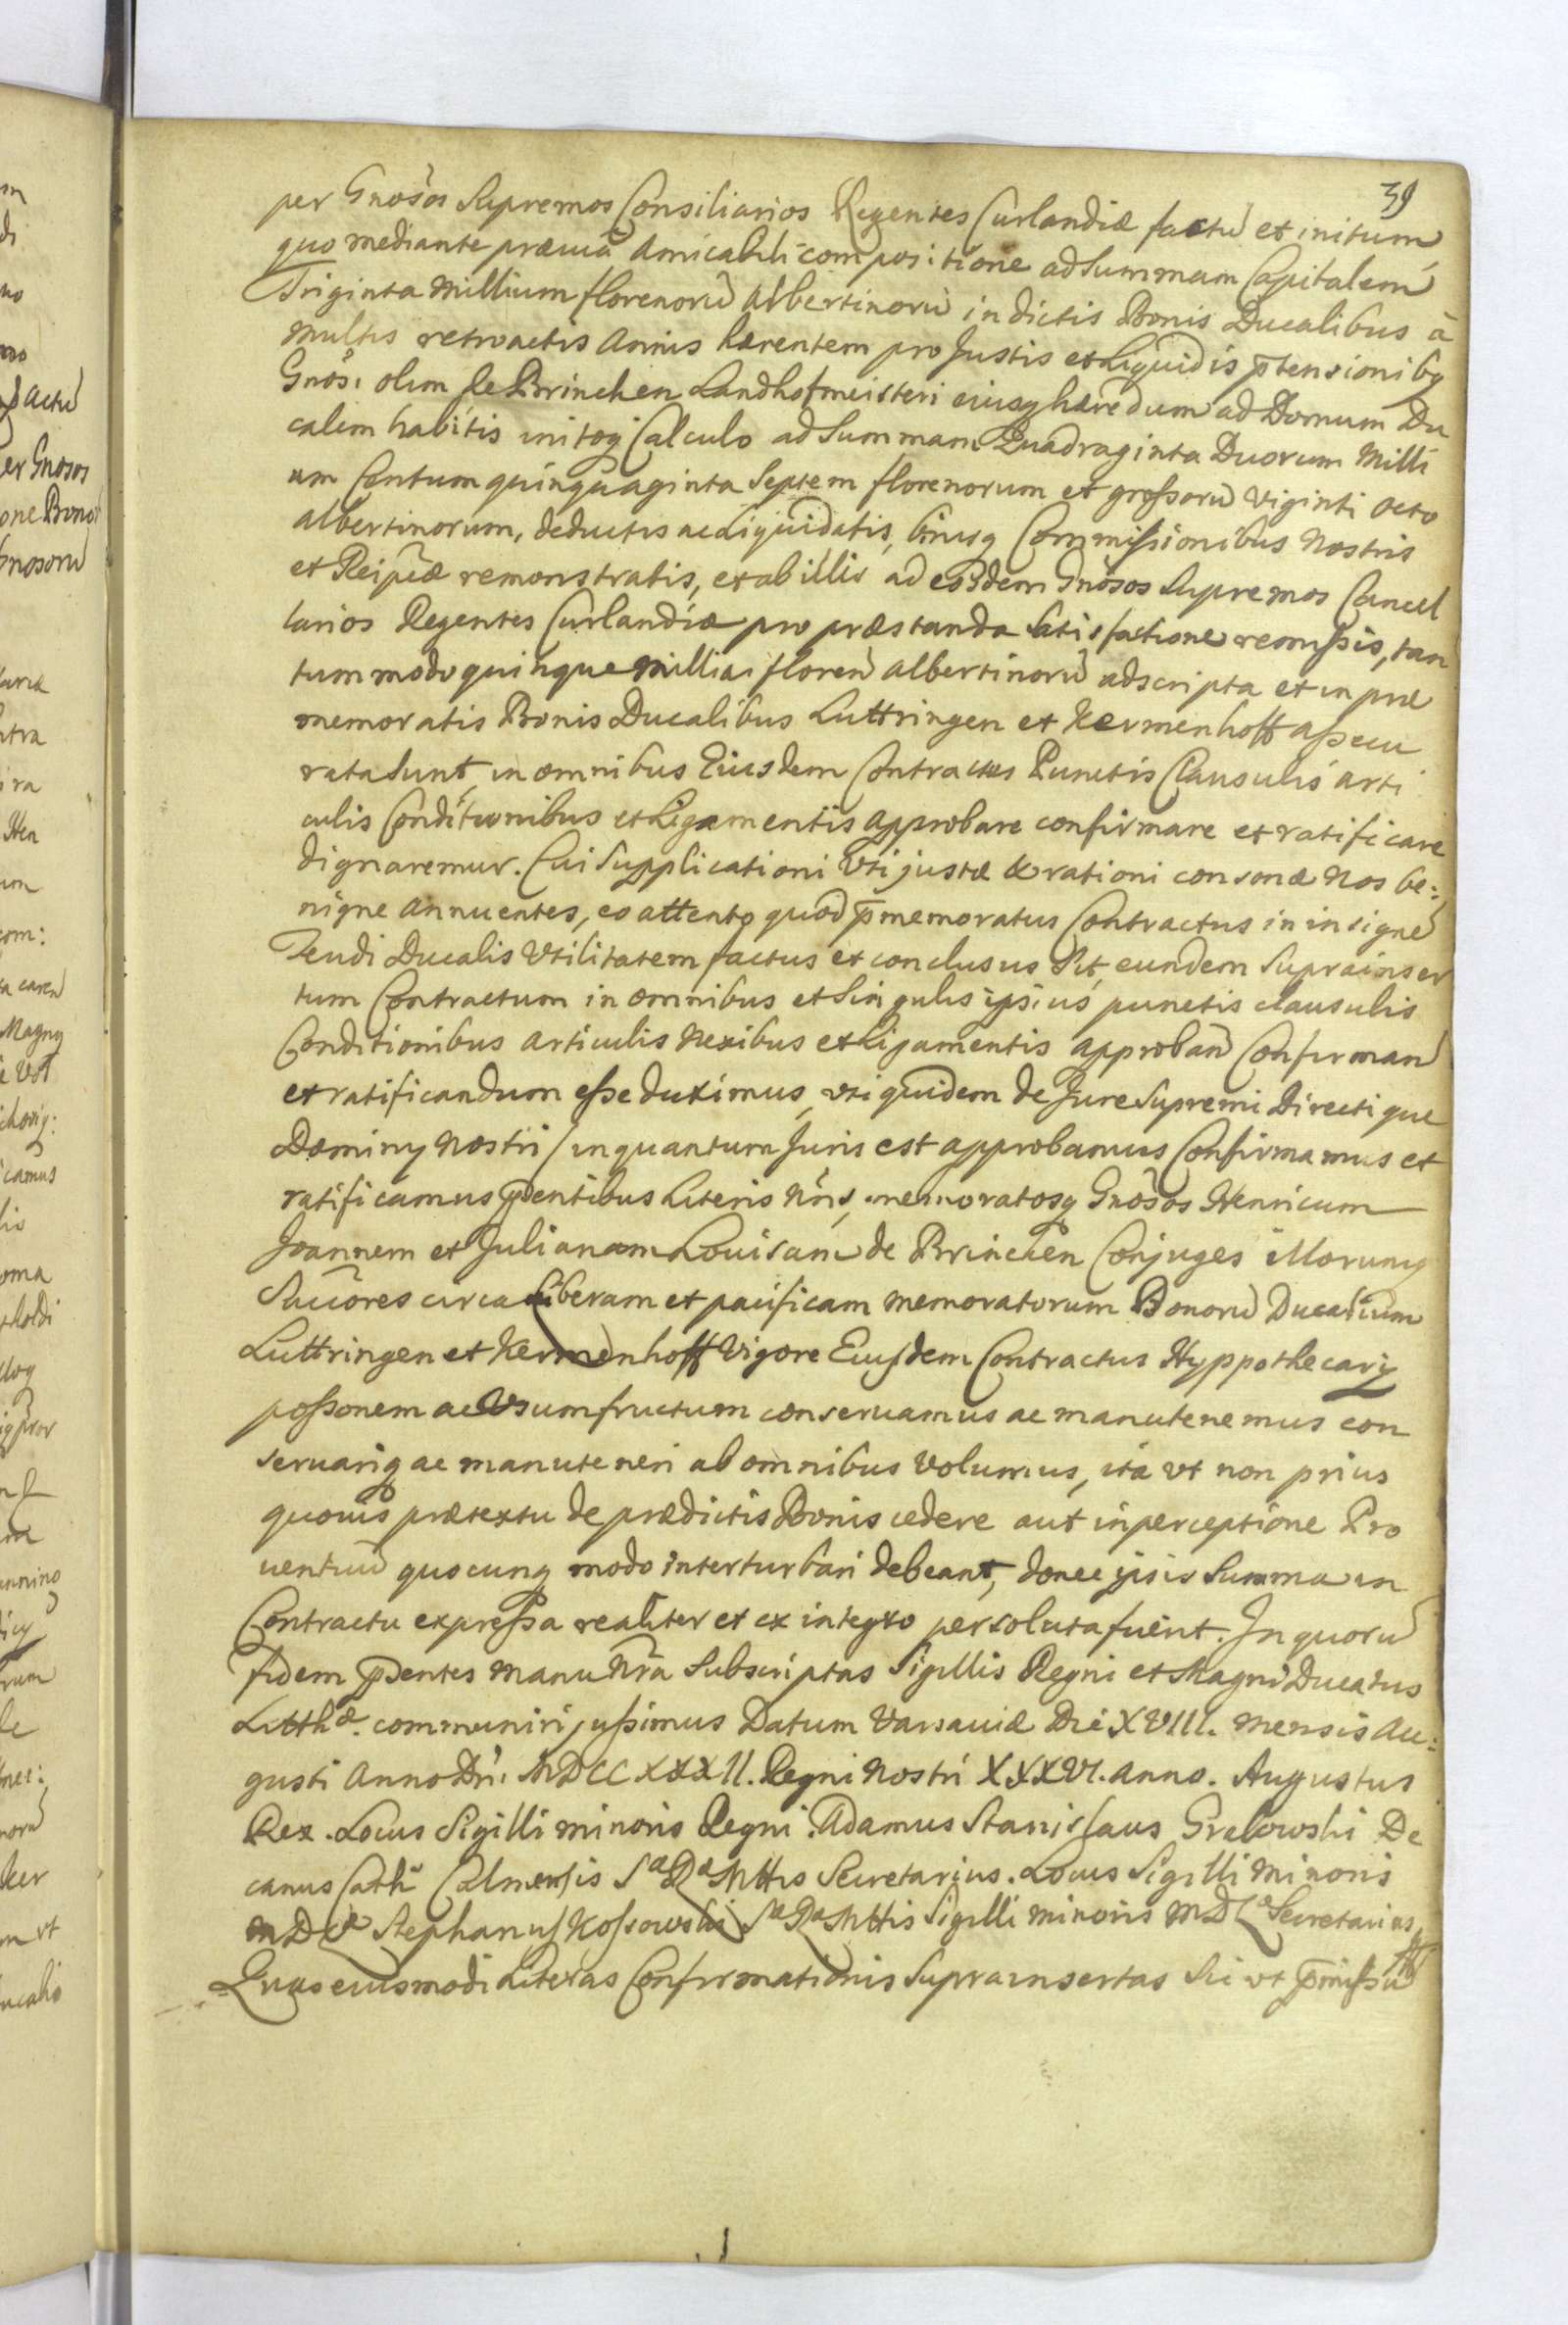 39
per Gnosos Supremos Consiliarios Regentes Curlandiæ factũ et initum
quo mediante præuia amicabili compositione ad Summam Capitalem
Triginta Millium florenorũ albertinorũ in dictis Bonis Ducalibus à
multis retroactis annis hærentem pro Justis et Liquidis p̃tensionibq
Gnosi olim de Brincken Landhofmeisteri eiusq hæredum ad Domum Du
calem habitis initoq Calculo ad Summam Quadraginta Duorum Milli
um Centum quinquaginta Septem florenorum et grossorũ viginti octo
albertinorum, deductis ac Liquidatis, binisq Commissionibus Nostris
et Reipcæ remonstratis, et ab illis ad eosdem Gnosos Supremos Cancel
larios Regentes Curlandiæ pro præstanda Satisfactione remissis, tan
tummodo quinque Millia floren̄ albertinorũ adscripta et in præ
memoratis Bonis Ducalibus Luttringen et Kermenhoff assecu
rata Sunt, in omnibus Eiusdem Contractus Punctis Clausulis arti
culis Conditionibus et Ligamentis approbare confirmare et ratificare
dignaremur. Cui Supplicationi Uti justæ & rationi consonæ Nos be:
nigne annuentes, eo attento quod p̃memoratus Contractus in insigne
Feudi Ducalis Utilitatem factus et conclusus Sit, eundem Suprainser
tum Contractum in omnibus et Singulis ipsius punctis clausulis
Conditionibus articulis Nexibus et Ligamentis approban̄ Confirman̄
et ratificandum esse duximus, uti quidem de Jure Supremi Directique
Dominij Nostri /in quantum Juris est approbamus Confirmamus et
ratificamus p̃sentibus Literis Nris, memoratosq Gnosos Henricum
Joannem et Julianam Louisam de Brincken Conjuges illorumq
Succores circa Liberam et pacificam memoratorum Bonorũ Ducalium
Luttringen et Kermenhoff Vigore Eiusdem Contractus Hyppothecarij
possonem ac Usumfructum conseruamus ac manutenemus con
seruariq ac manuteneri ab omnibus Volumus, ita vt non prius
quouis prætextu de prædictis Bonis cedere aut in perceptione Pro
uentuũ quocunq modo interturbari debeant, donec ipsis Summa in
Contractu expressa realiter et ex integro persoluta fuerit. In quorũ
fidem p̃sentes manu Nrã Subscriptas Sigillis Regni et Magni Ducatus
Litthæ. communiri jussimus Datum Varsaviæ Die XVIII. mensis Au:
gusti Anno Dni. MDCCXXXII. Regni Nostri XXXVI. anno. Augustus
Rex. Locus Sigilli minoris Regni. Adamus Stanislaus Grabowski De
canus Cath Culmensis Sæ Ræ Mttis Secretarius. Locus Sigilli Minoris
MDL Stephanus Kossowski Sæ Ræ Mttis Sigilli minoris MDL Secretarius
Quas eiusmodi Literas Confirmationis Suprainsertas Sic vt p̃missũ